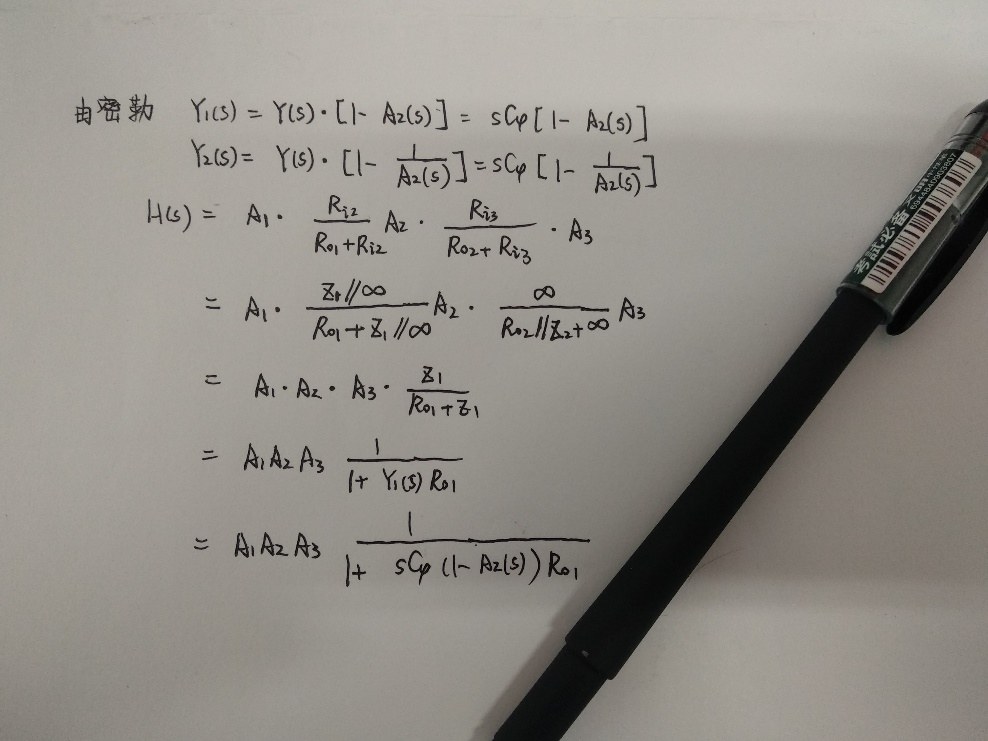 由密勒 Y₁(s) = Y(s)·[1- A₂(s)] = sCφ[1- A₂(s)]
Y₂(s) = Y(s)·[1- 1/A₂(s)] = sCφ[1- 1/A₂(s)]
H(s) = A₁· Ri2/(Ro1+Ri2) A₂· Ri3/(Ro2+Ri3) ·A₃
= A₁· Z₁//∞/(Ro1+Z₁//∞) A₂· ∞/(Ro2//Z₂+∞) A₃
= A₁·A₂·A₃· Z₁/(Ro1+Z₁)
= A₁A₂A₃ 1/(1+ Y₁(s)Ro1)
= A₁A₂A₃ 1/(1+ sCφ(1-A₂(s))Ro1)
考試必备